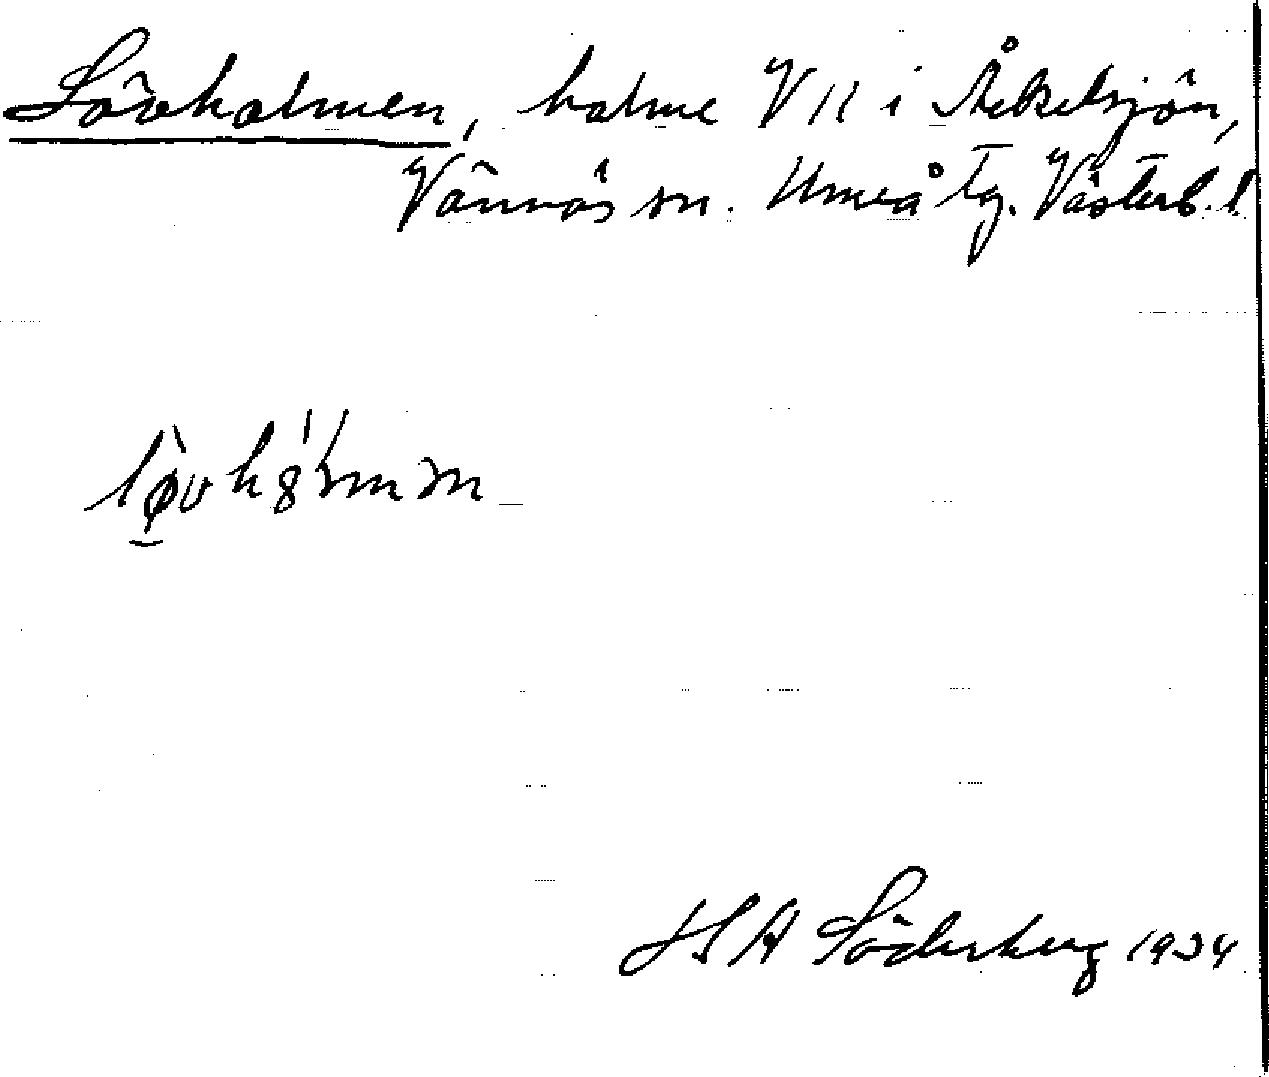 Lövholmen, holme V 11 i Åkelsjön,
Vännäs sn. Umeå tg. Västerb. l
H A Söderberg 1934